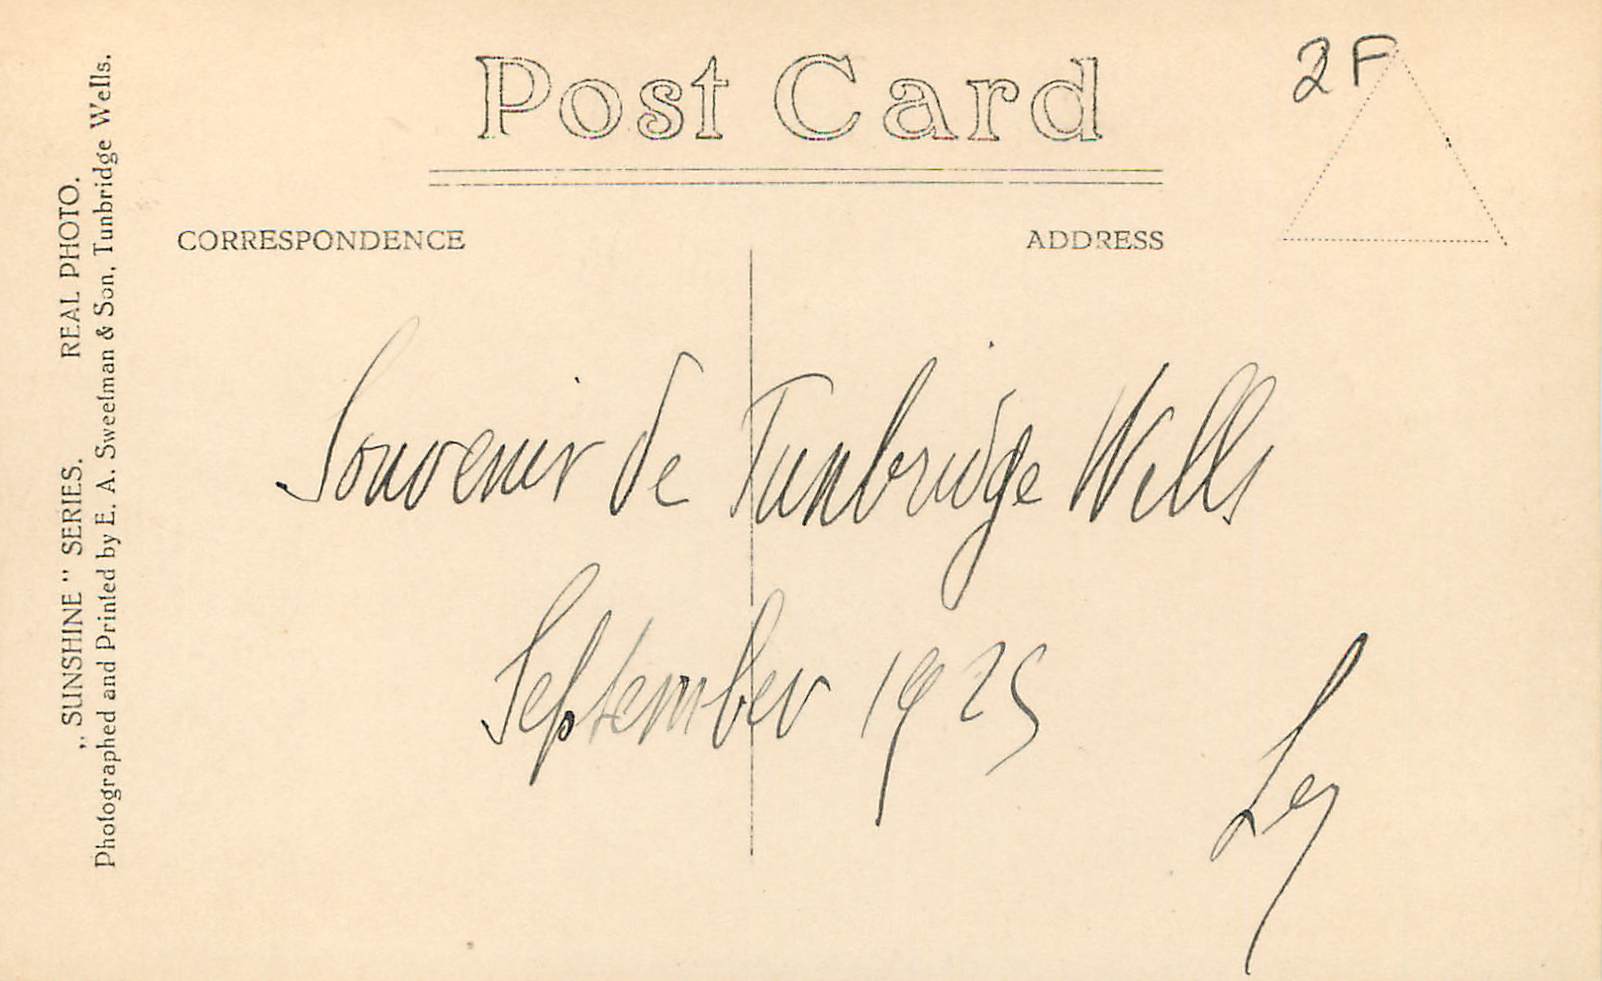 Post Card
2F
CORRESPONDENCE
ADDRESS
„ SUNSHINE " SERIES. REAL PHOTO.
Photographed and Printed by E. A. Sweetman & Son, Tunbridge Wells.
Souvenir de Tunbridge Wells
September 1925